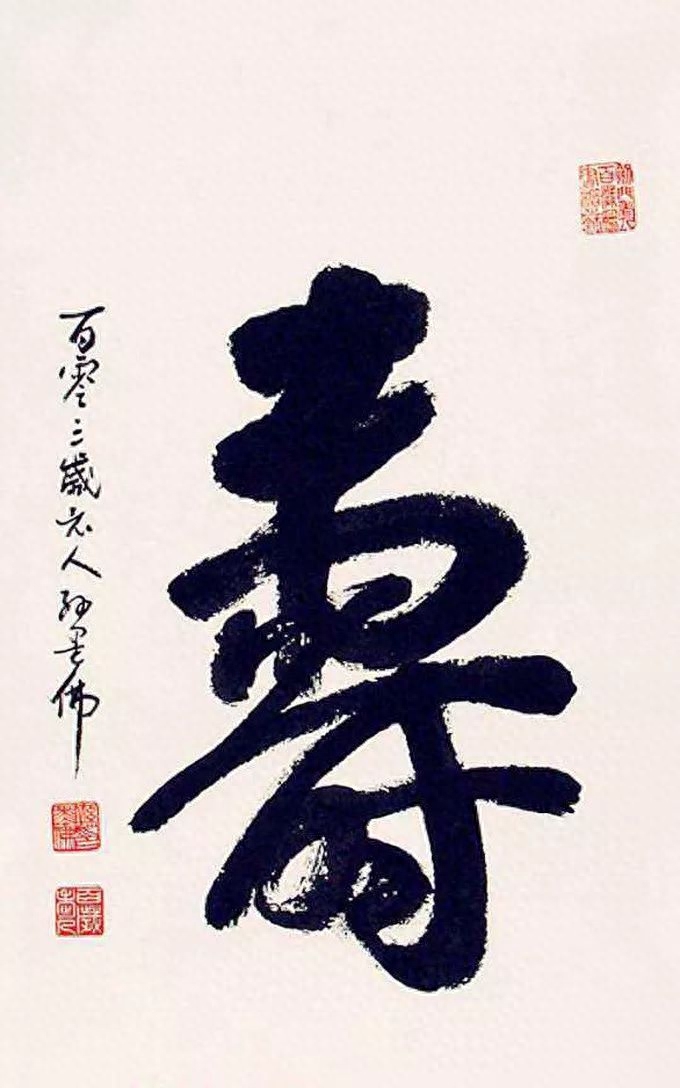 壽
百零三歲老人孫墨佛